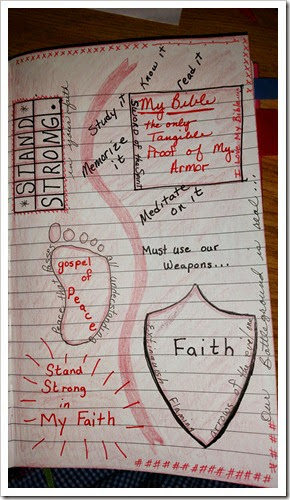 *STAND*
STRONG.
in your faith
Study it
Know it
read it
Memorize
it
Meditate
on it
Sword of the Spirit
My Bible
the only
Tangible
Proof of My
Armor
I love my Bible
gospel
of
Peace
Peace that passes
all understanding
Must use our
Weapons...
Faith
Extinguish
Flaming
arrows of the evil one
Our battleground is real...
Stand
Strong
in
My Faith